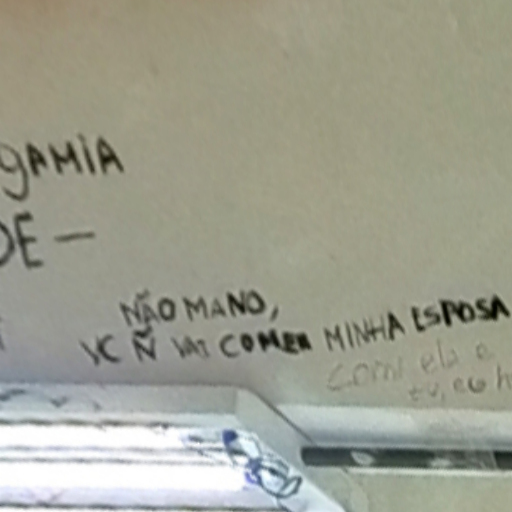 gAMiA
DE —
NÃO MANO,
VC Ñ VAI COMER MINHA ESPOSA
Comi ela e
tu, eu h